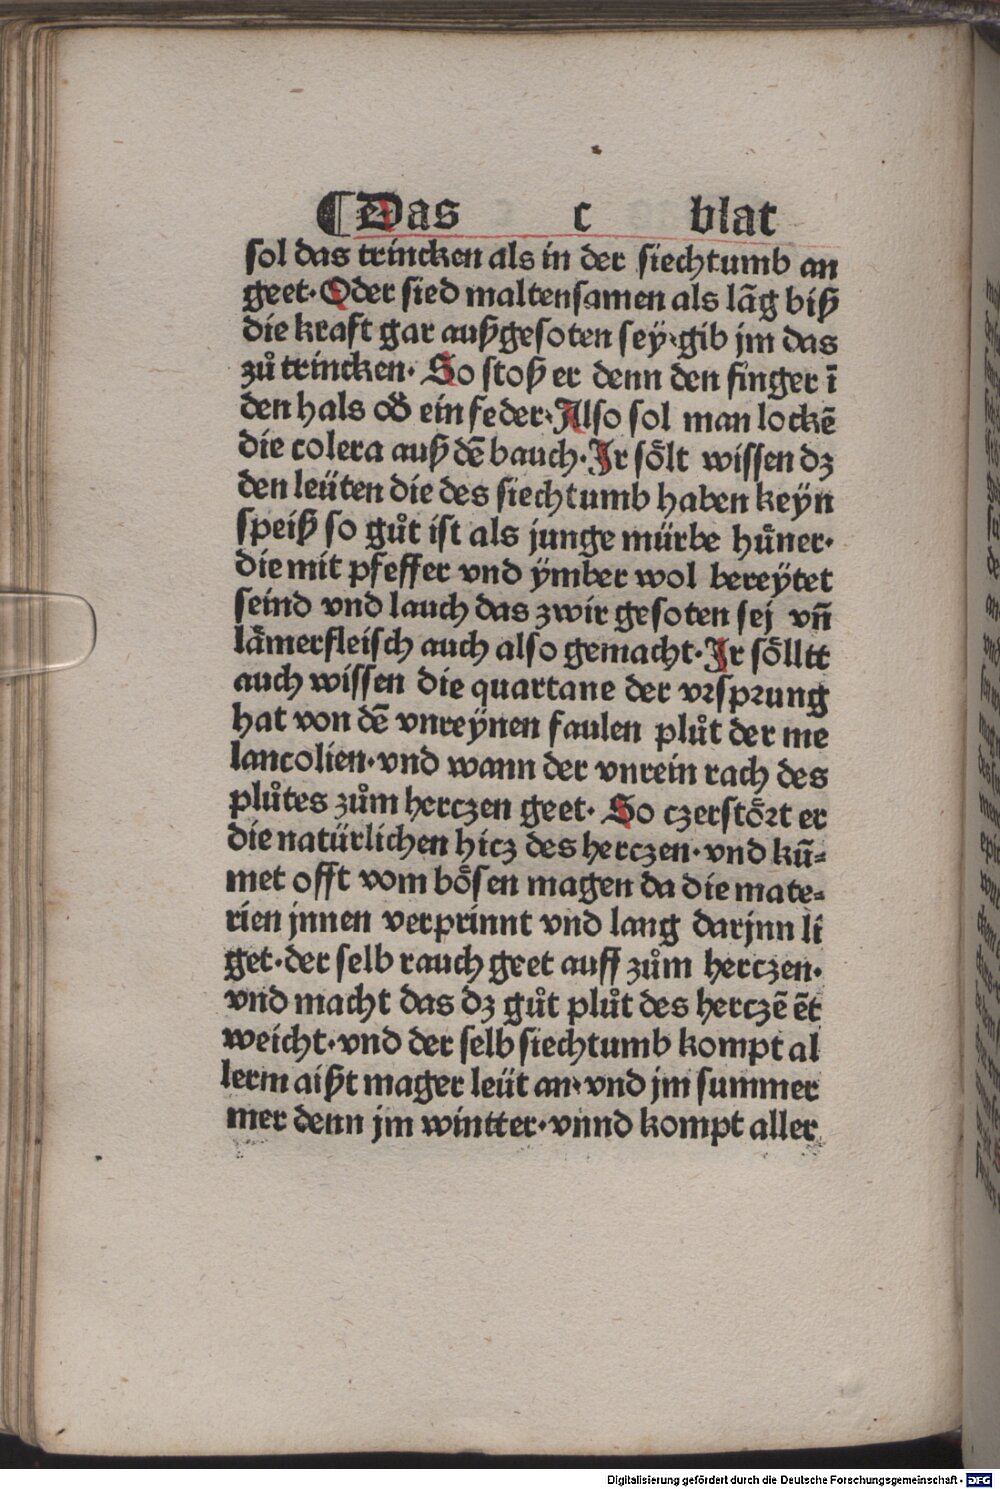 ¶ Das c blat
sol das trincken als in der siechtumb an
geet· Oder sied maltensamen als lãg biß
die kraft gar außgesoten sey·gib jm das
zů trincken· So stoß er denn den finger ī
den hals oď ein feder·Also sol man lockē
die colera auß dē bauch·Ir soͤlt wissen dz
den leüten die des siechtumb haben keyn
speiß so gůt ist als junge mürbe huͤner·
die mit pfeffer vnd ÿmber wol bereÿtet
seind vnd lauch das zwir gesoten sej vñ
laͤmerfleisch auch also gemacht·Ir soͤlltt
auch wissen die quartane der vꝛspꝛung
hat von dē vnreÿnen faulen plůt der me
lancolien·vnd wann der vnrein rach des
plůtes zům herczen geet· So czerstoͤꝛt er
die natürlichen hicz des herczen·vnd kū⸗
met offt vom boͤsen magen da die mate⸗
rien jnnen verprinnt vnd lang darjnn li
get·der selb rauch geet auff zům herczen·
vnd macht das dz gůt plůt des herczē ēt
weicht·vnd der selb siechtumb kompt al
lerm aißt mager leüt an·vnd jm summer
mer denn jm wintter·vnnd kompt aller
Digitalisierung gefördert durch die Deutsche Forschungsgemeinschaft - DFG